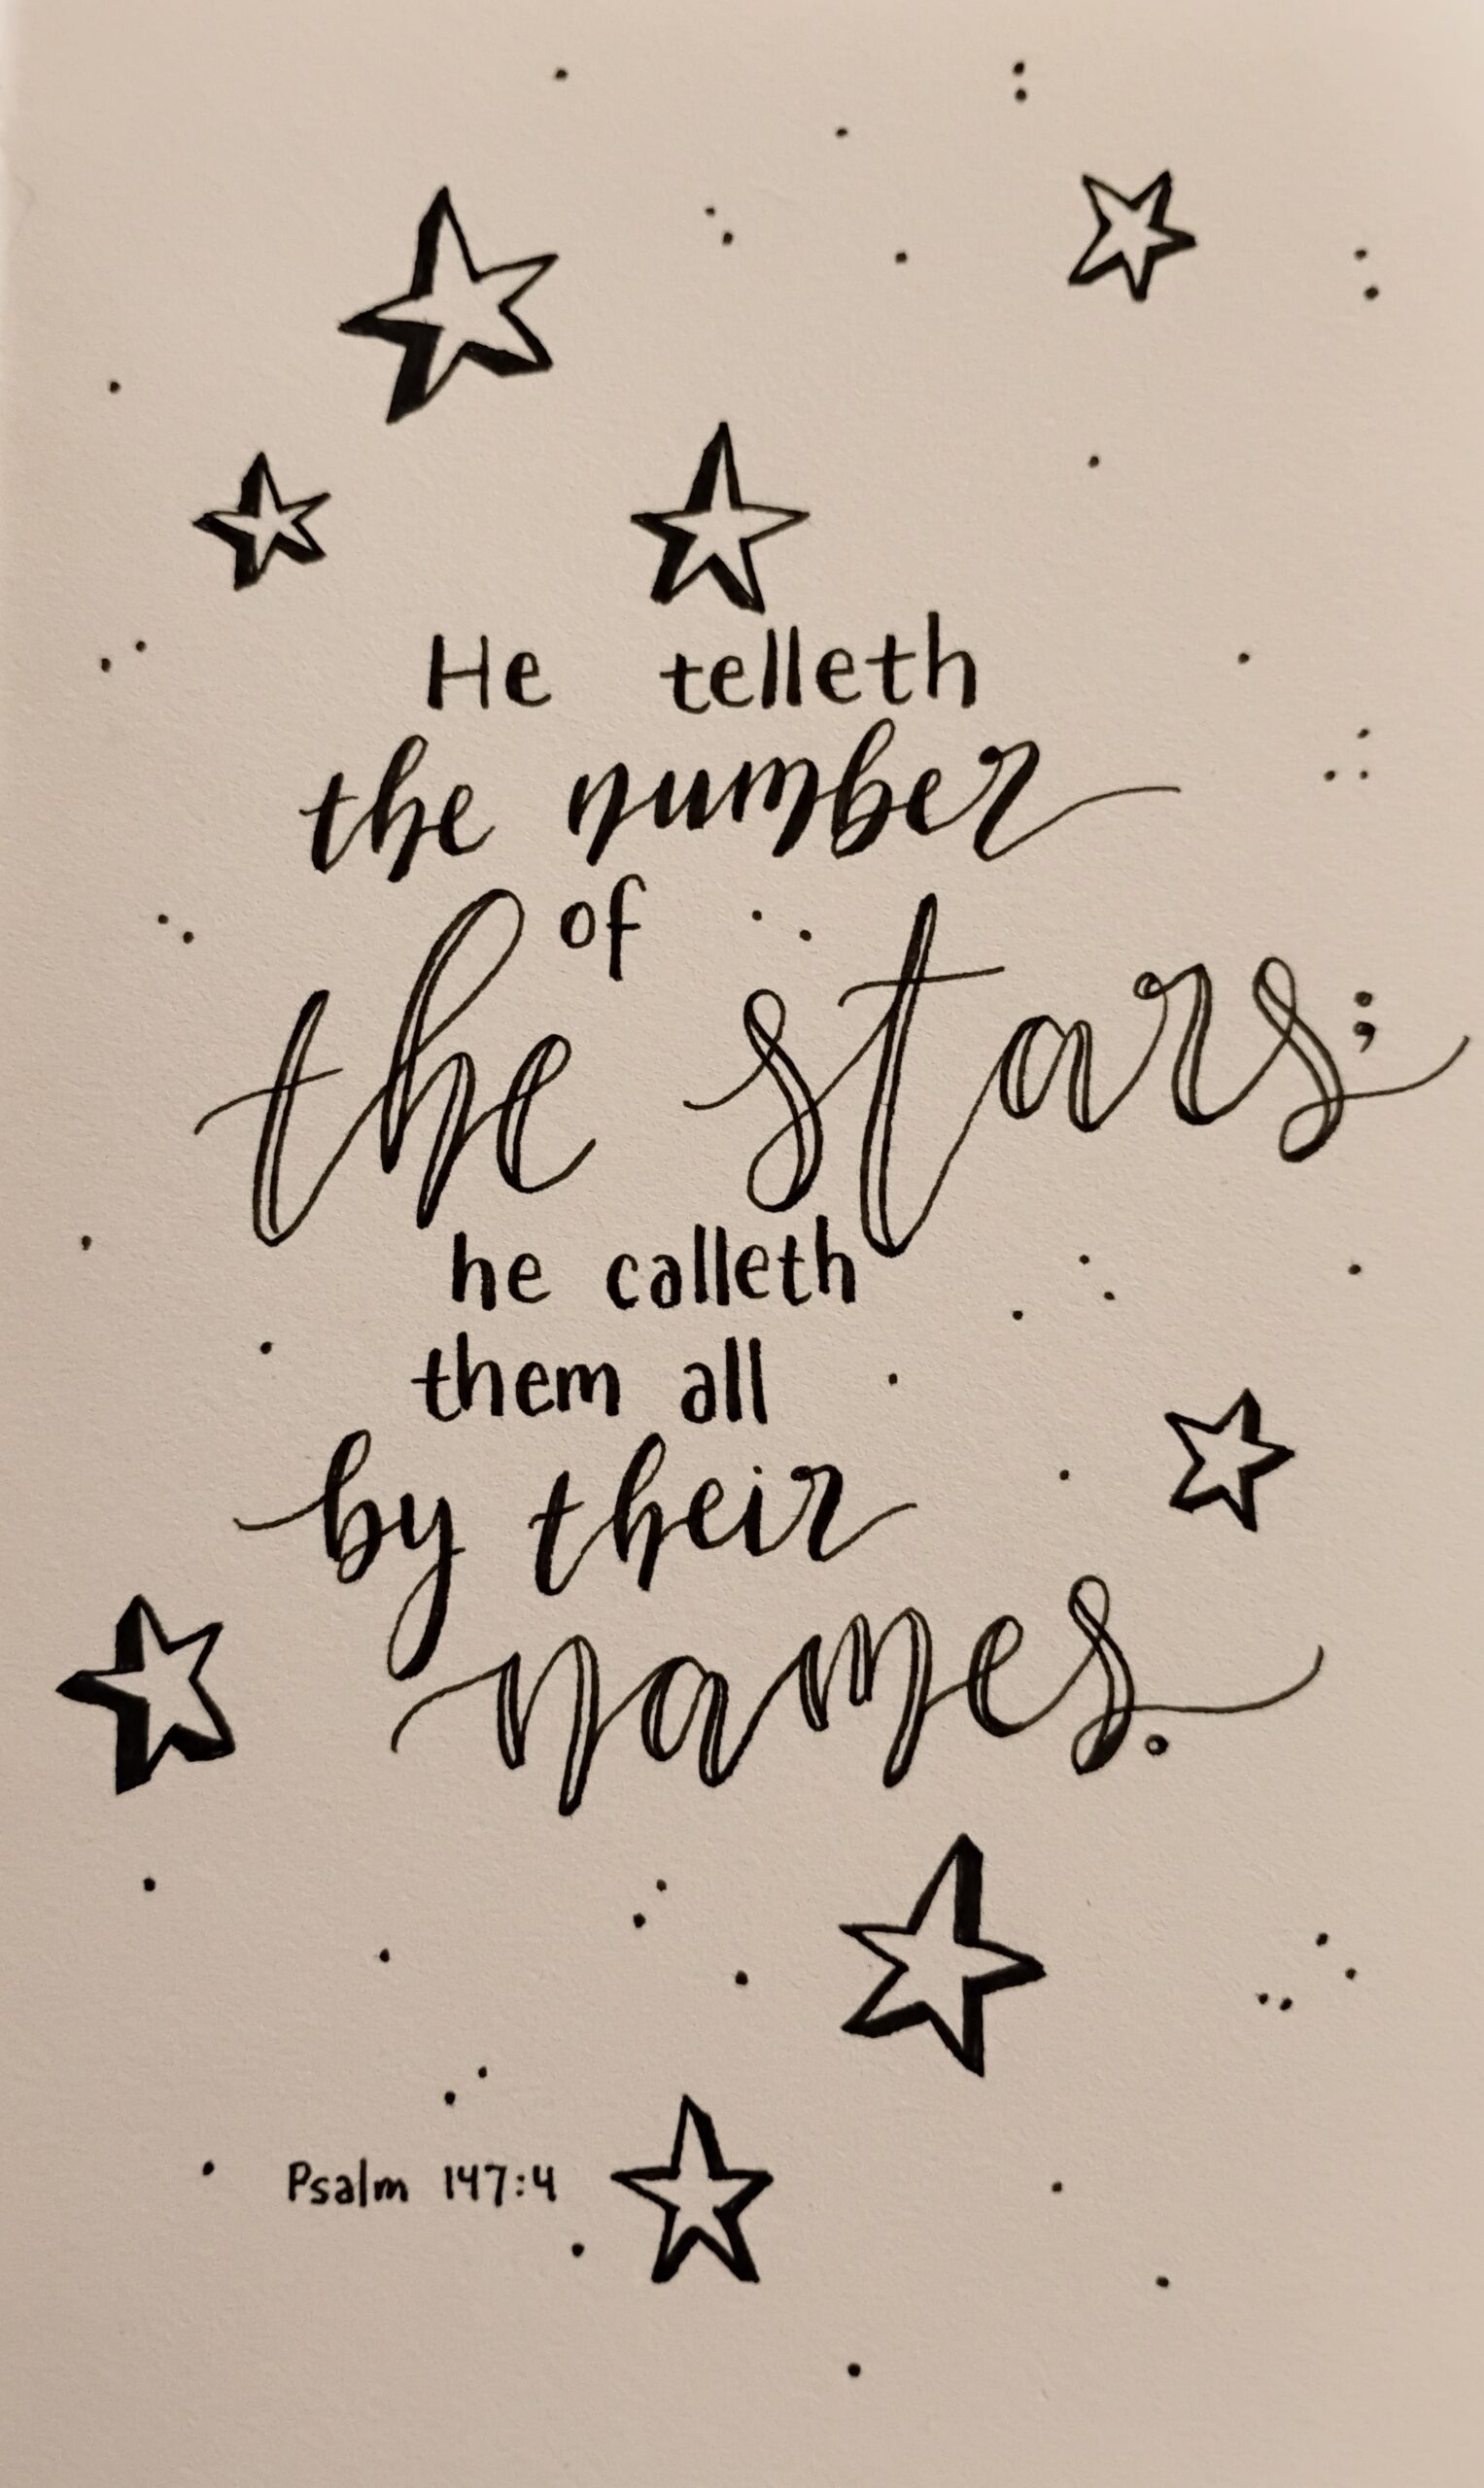 He telleth
the number
of
the stars;
he calleth
them all
by their
names.
Psalm 147:4